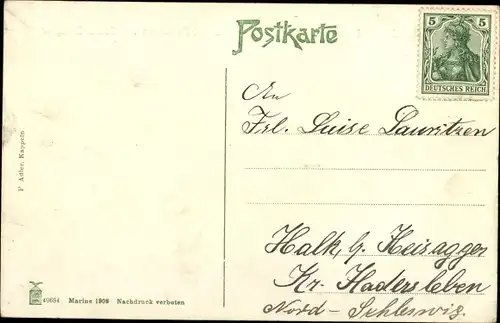 Postkarte
5 5
DEUTSCHES REICH
An
Frl. Luise Lauritzen
Halk, b. Heisagger
Kr. Hadersleben
Nord-Schleswig.
F Adler, Kappeln
40664 Marine 1909 Nachdruck verboten